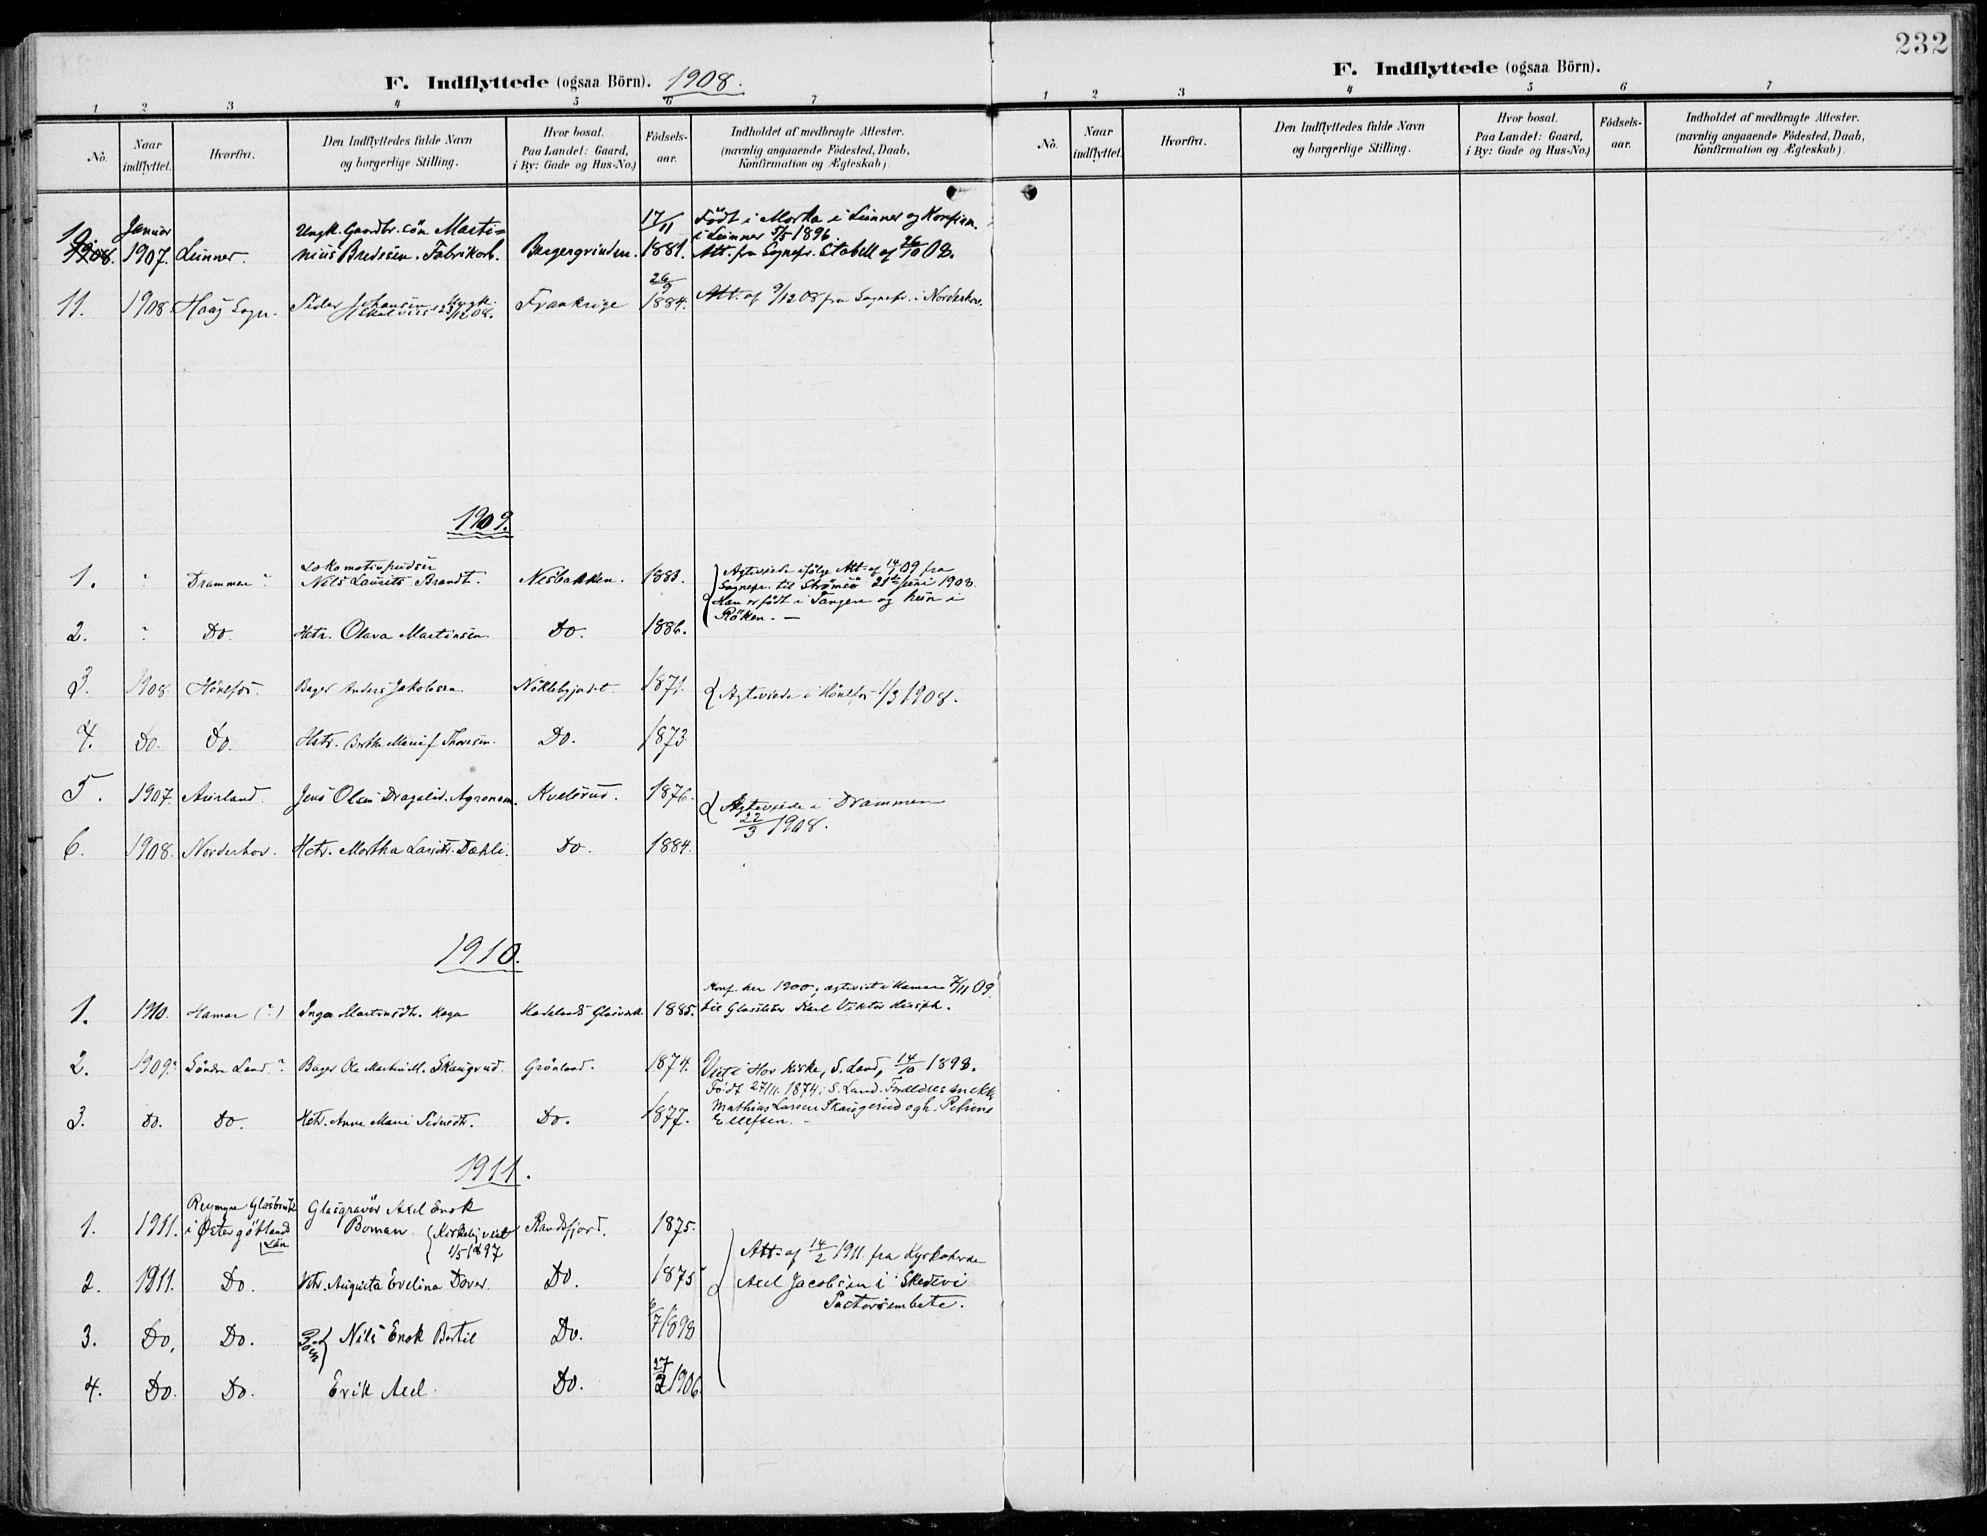 232
F. Indflyttede (ogsaa Börn). 1908.
1 2 3 4 5 6 7
No. Naar indflyttet. Hvorfra. Den Indflyttedes fulde Navn og borgerlige Stilling. Hvor bosat. Paa Landet: Gaard, i By: Gade og Hus-No.) Födsels-aar. Indholdet af medbragte Attester. (navnlig angaaende Födested, Daab, Konfirmation og Ægteskab).
F. Indflyttede (ogsaa Börn).
1 2 3 4 5 6 7
No. Naar indflyttet. Hvorfra. Den Indflyttedes fulde Navn og borgerlige Stilling. Hvor bosat. Paa Landet: Gaard, i By: Gade og Hus-No.) Födsels-aar. Indholdet af medbragte Attester. (navnlig angaaende Födested, Daab, Konfirmation og Ægteskab).
10 Januar Ungk. Gaardbr. sön Marti- 17/11 Födt i Morka i Lunner og Konfirm.
1908. 1907. Lunner. nius Bredesen. Fabrikarb. Bergergrinden. 1881. i Lunner 5/5 1896.
Att. fra Sognepr. Stabell af 26/10 08.
11. 1908 Haug Sogn. Peder Johansen Ungk. Frankrige 26/9 1884. Att. af 9/12 08 fra Sognepr. i Norderhov.
1909.
1. " Drammen " Lokomotivpudser
Nils Laurits Brandt. Nesbakken. 1883. Ægteviede ifölge Att. af 14/1 09 fra
Sognepr. til Strömsö 21de juni 1908.
Han er födt i Tangen og hun i
Röken. —
2. " Do. Hstr. Olava Martinsen. Do. 1886.
3. 1908 Hönefos. Bager Anders Jakobsen Nöklebyjordet. 1871. Ægteviede i Hönefos 1/3 1908.
4. Do. Do. Hstr. Berthe Marie Thoresen. Do. 1873
5. 1907. Aurland. Jens Olsen Dragelid. Agronom. Kvelsrud. 1876. Ægteviede i Drammen
22/3 1908.
6. 1908. Norderhov. Hstr. Martha Larsdtr. Dæhli. Do. 1884.
1910.
1. 1910. Hamar (?) Inga Martinsdtr. Haga Hadelands Glasværk 1885. Konf. her 1900, ægteviet i Hamar 7/11 09.
til Glassliber Karl Viktor
2. 1909? Söndre Land ? Bager Ole Martin M. Skaugrud. Grönland. 1874. Viet i Hov Kirke, S. Land, 14/10 1898.
Födt 27/11 1874 i S. Land. Forældre
3. Do. Do. Hstr. Anne Marie Do. 1877. Mathias Larsen Skaugerud og h. Petrine
Ellefsen. —
1911.
1. 1911. Reymyre Glasbruk Glasgravör Axel Enok
i Östergötlands Län Boman. Kirkelig viet 1/5 1897 Randsfjord. 1875.
2. 1911. Do. Hstr. Augusta Evelina Dover. Do. 1875 Att. af 14/2 1911 fra Kyrkoherde
Axel Jacobsen i Skedevi
Pastorsembete.
3. Do. Do. Nils Enok Bertil Do. 6/7 1898
4. Do. Do. Erik Axel. Do. 27/2 1906